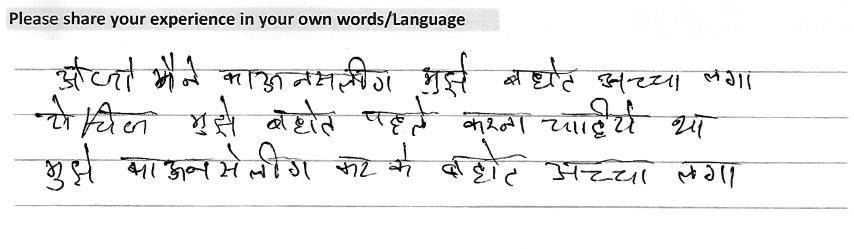 Please share your experience in your own words/Language
ओजो मैने काऊनसलीग मुझे बहोत अच्चा लगा
ये चिज मुझे बहोत पहले करना चाहिये था
मुझे काऊनसेलीग कर के बहोत अच्चा लगा